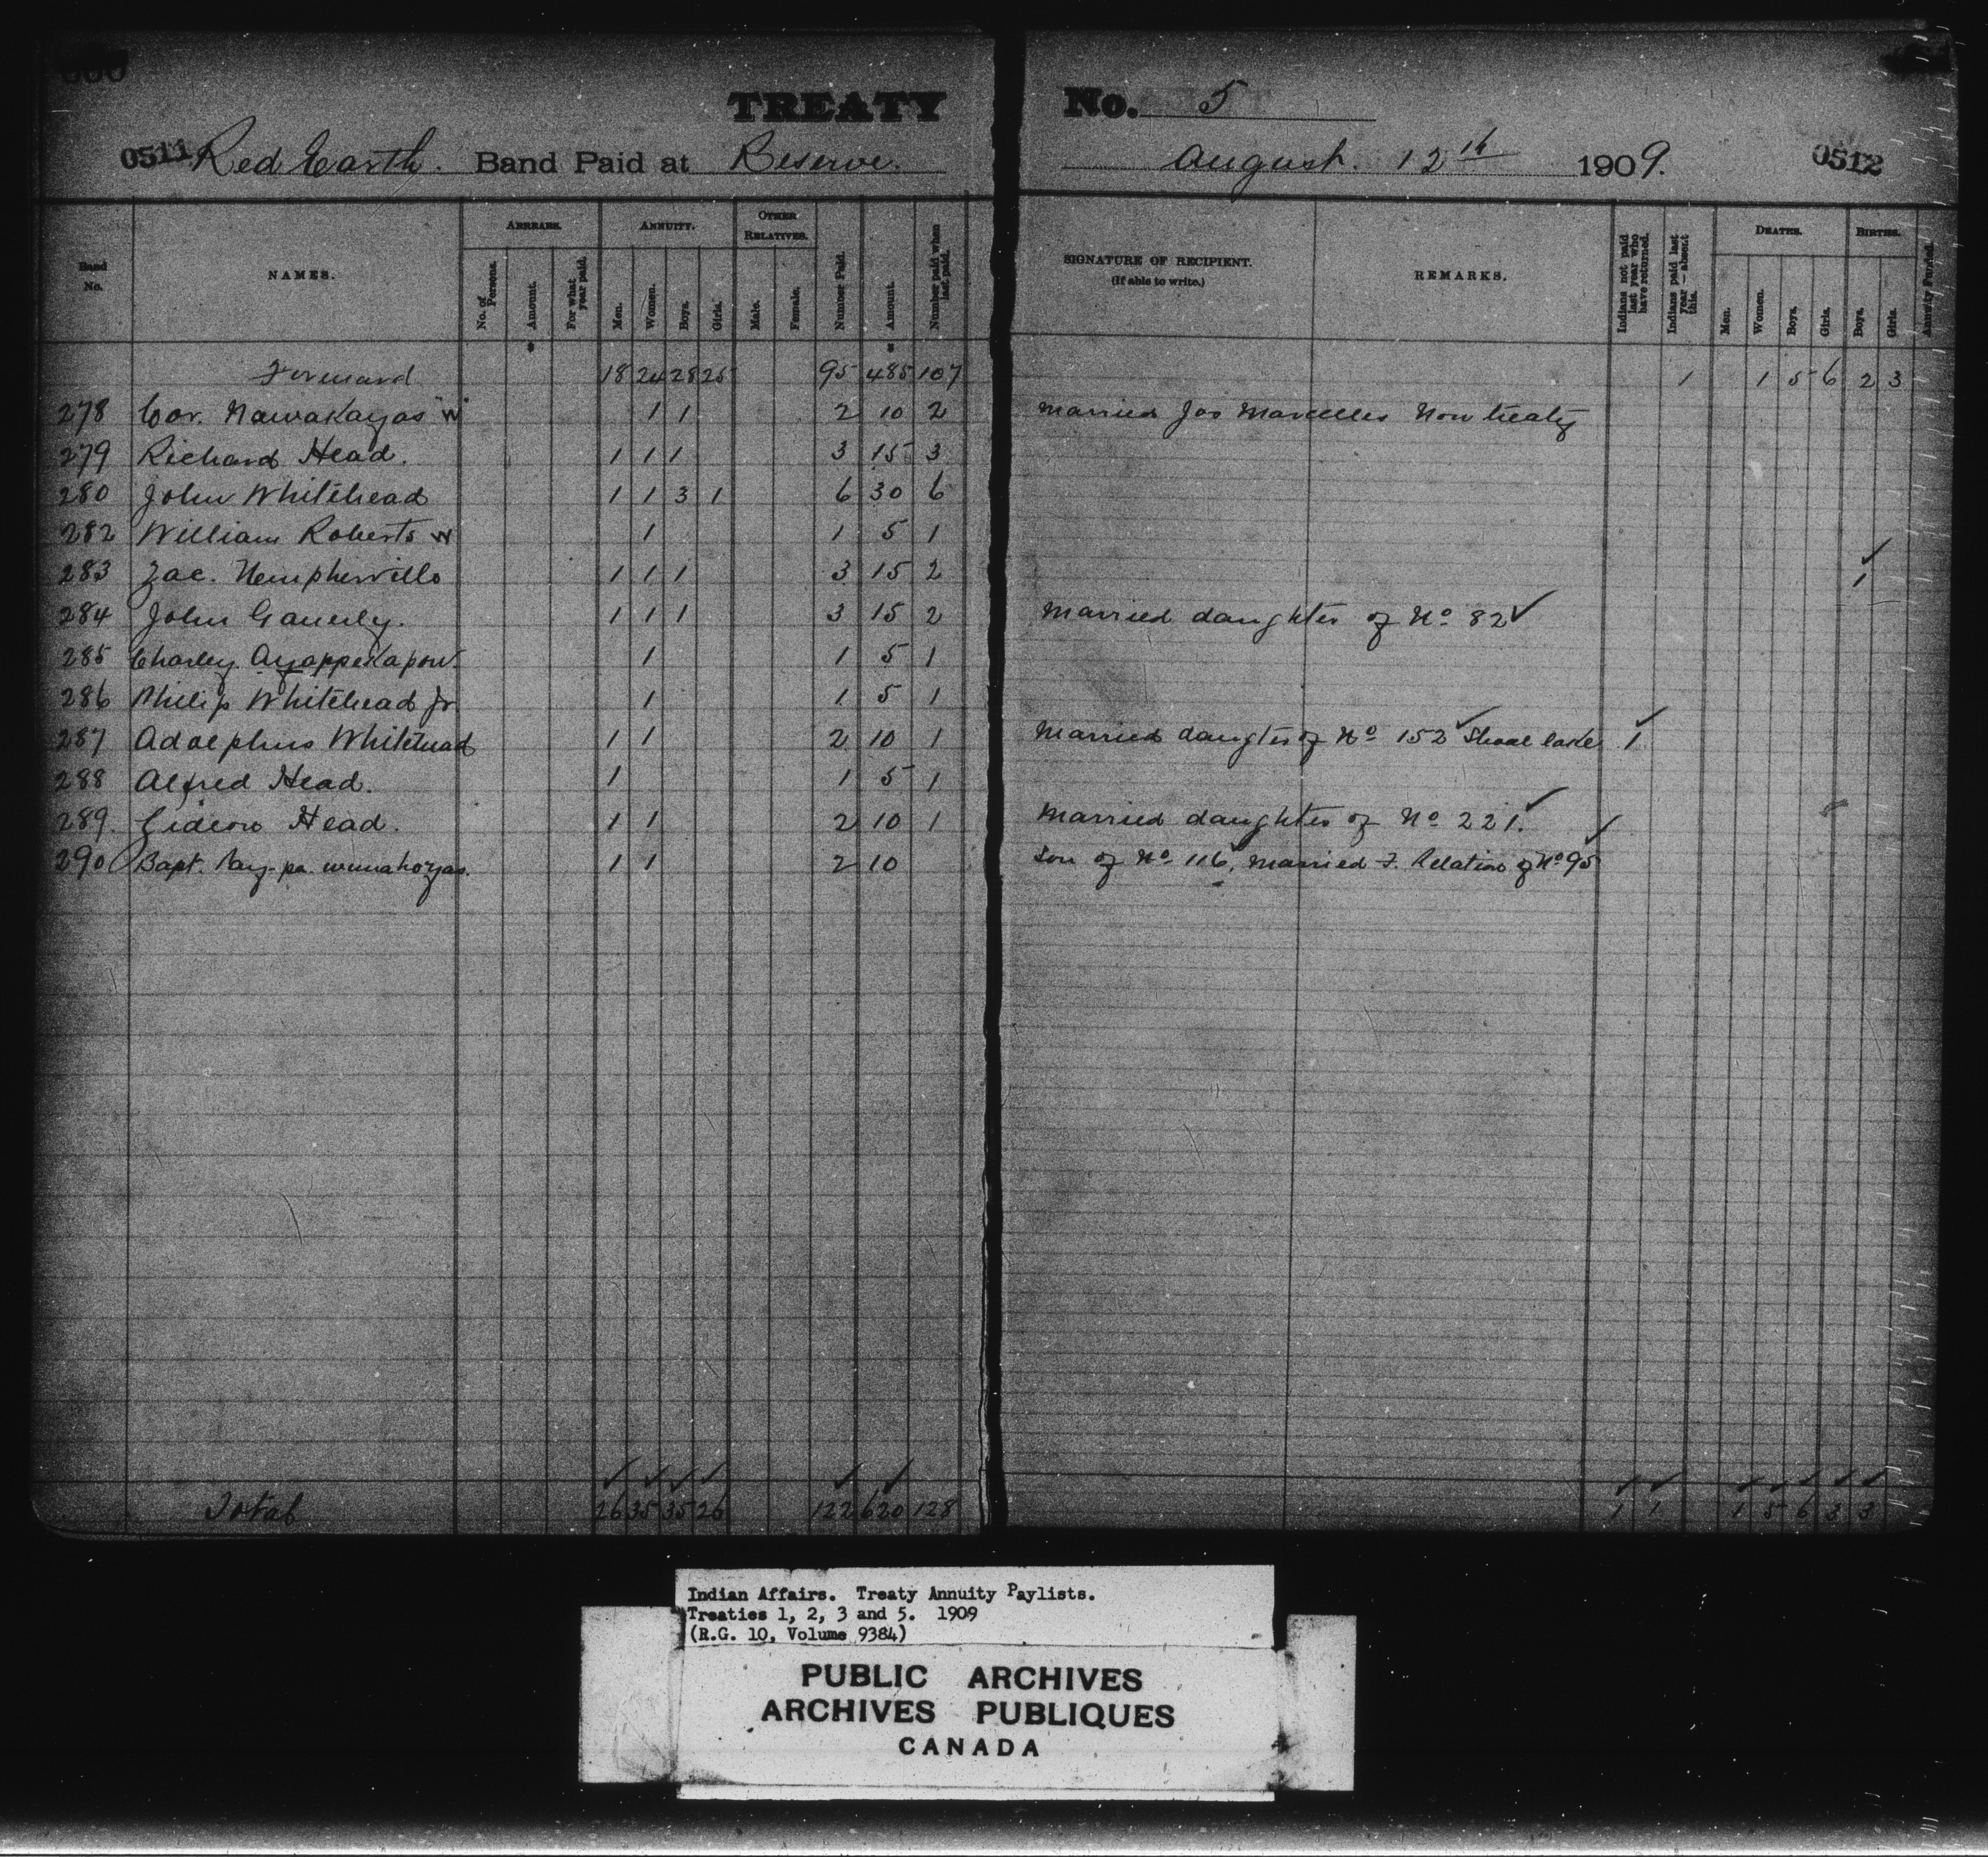 TREATY No. 5
0511 Red Earth. Band Paid at Reserve. August. 12th 1909. 0512
Band No. NAMES. ARREARS. No. of Persons. Amount. For what year paid. ANNUITY. Men. Women. Boys. Girls. OTHER RELATIVES. Male. Female. Number Paid. Amount. Number paid when last paid. SIGNATURE OF RECIPIENT. (If able to write.) REMARKS. Indians not paid last year who have returned. Indians paid last year — absent this. DEATHS. Men. Women. Boys. Girls. BIRTHS. Boys. Girls. Annuity Funded.
Forward 18 24 28 25 95 485 107 1 1 5 6 2 3
278 Cor. Nawakayas "W" 1 1 2 10 2 Married Jas Marcelles Non treaty
279 Richard Head. 1 1 1 3 15 3
280 John Whitehead 1 1 3 1 6 30 6
282 William Roberts W 1 1 5 1
283 Zac. 1 1 1 3 15 2 ✓ 1
284 John 1 1 1 3 15 2 Married daughter of No 82 ✓
285 Charley 1 1 5 1
286 Philip Whitehead Jr 1 1 5 1
287 Adolphus Whitehead 1 1 2 10 1 Married daughter of No 152 ✓ Shoal Lake 1 ✓
288 Alfred Head. 1 1 5 1
289. Gideon Head. 1 1 2 10 1 Married daughter of No 221. ✓
290 Bapt. 1 1 2 10 Son of No 116, Married F. Relation of No 95 ✓
Total 26 35 35 26 122 620 128 1 1 1 5 6 3 3
Indian Affairs. Treaty Annuity Paylists.
Treaties 1, 2, 3 and 5. 1909
(R.G. 10, Volume 9384)
PUBLIC ARCHIVES
ARCHIVES PUBLIQUES
CANADA